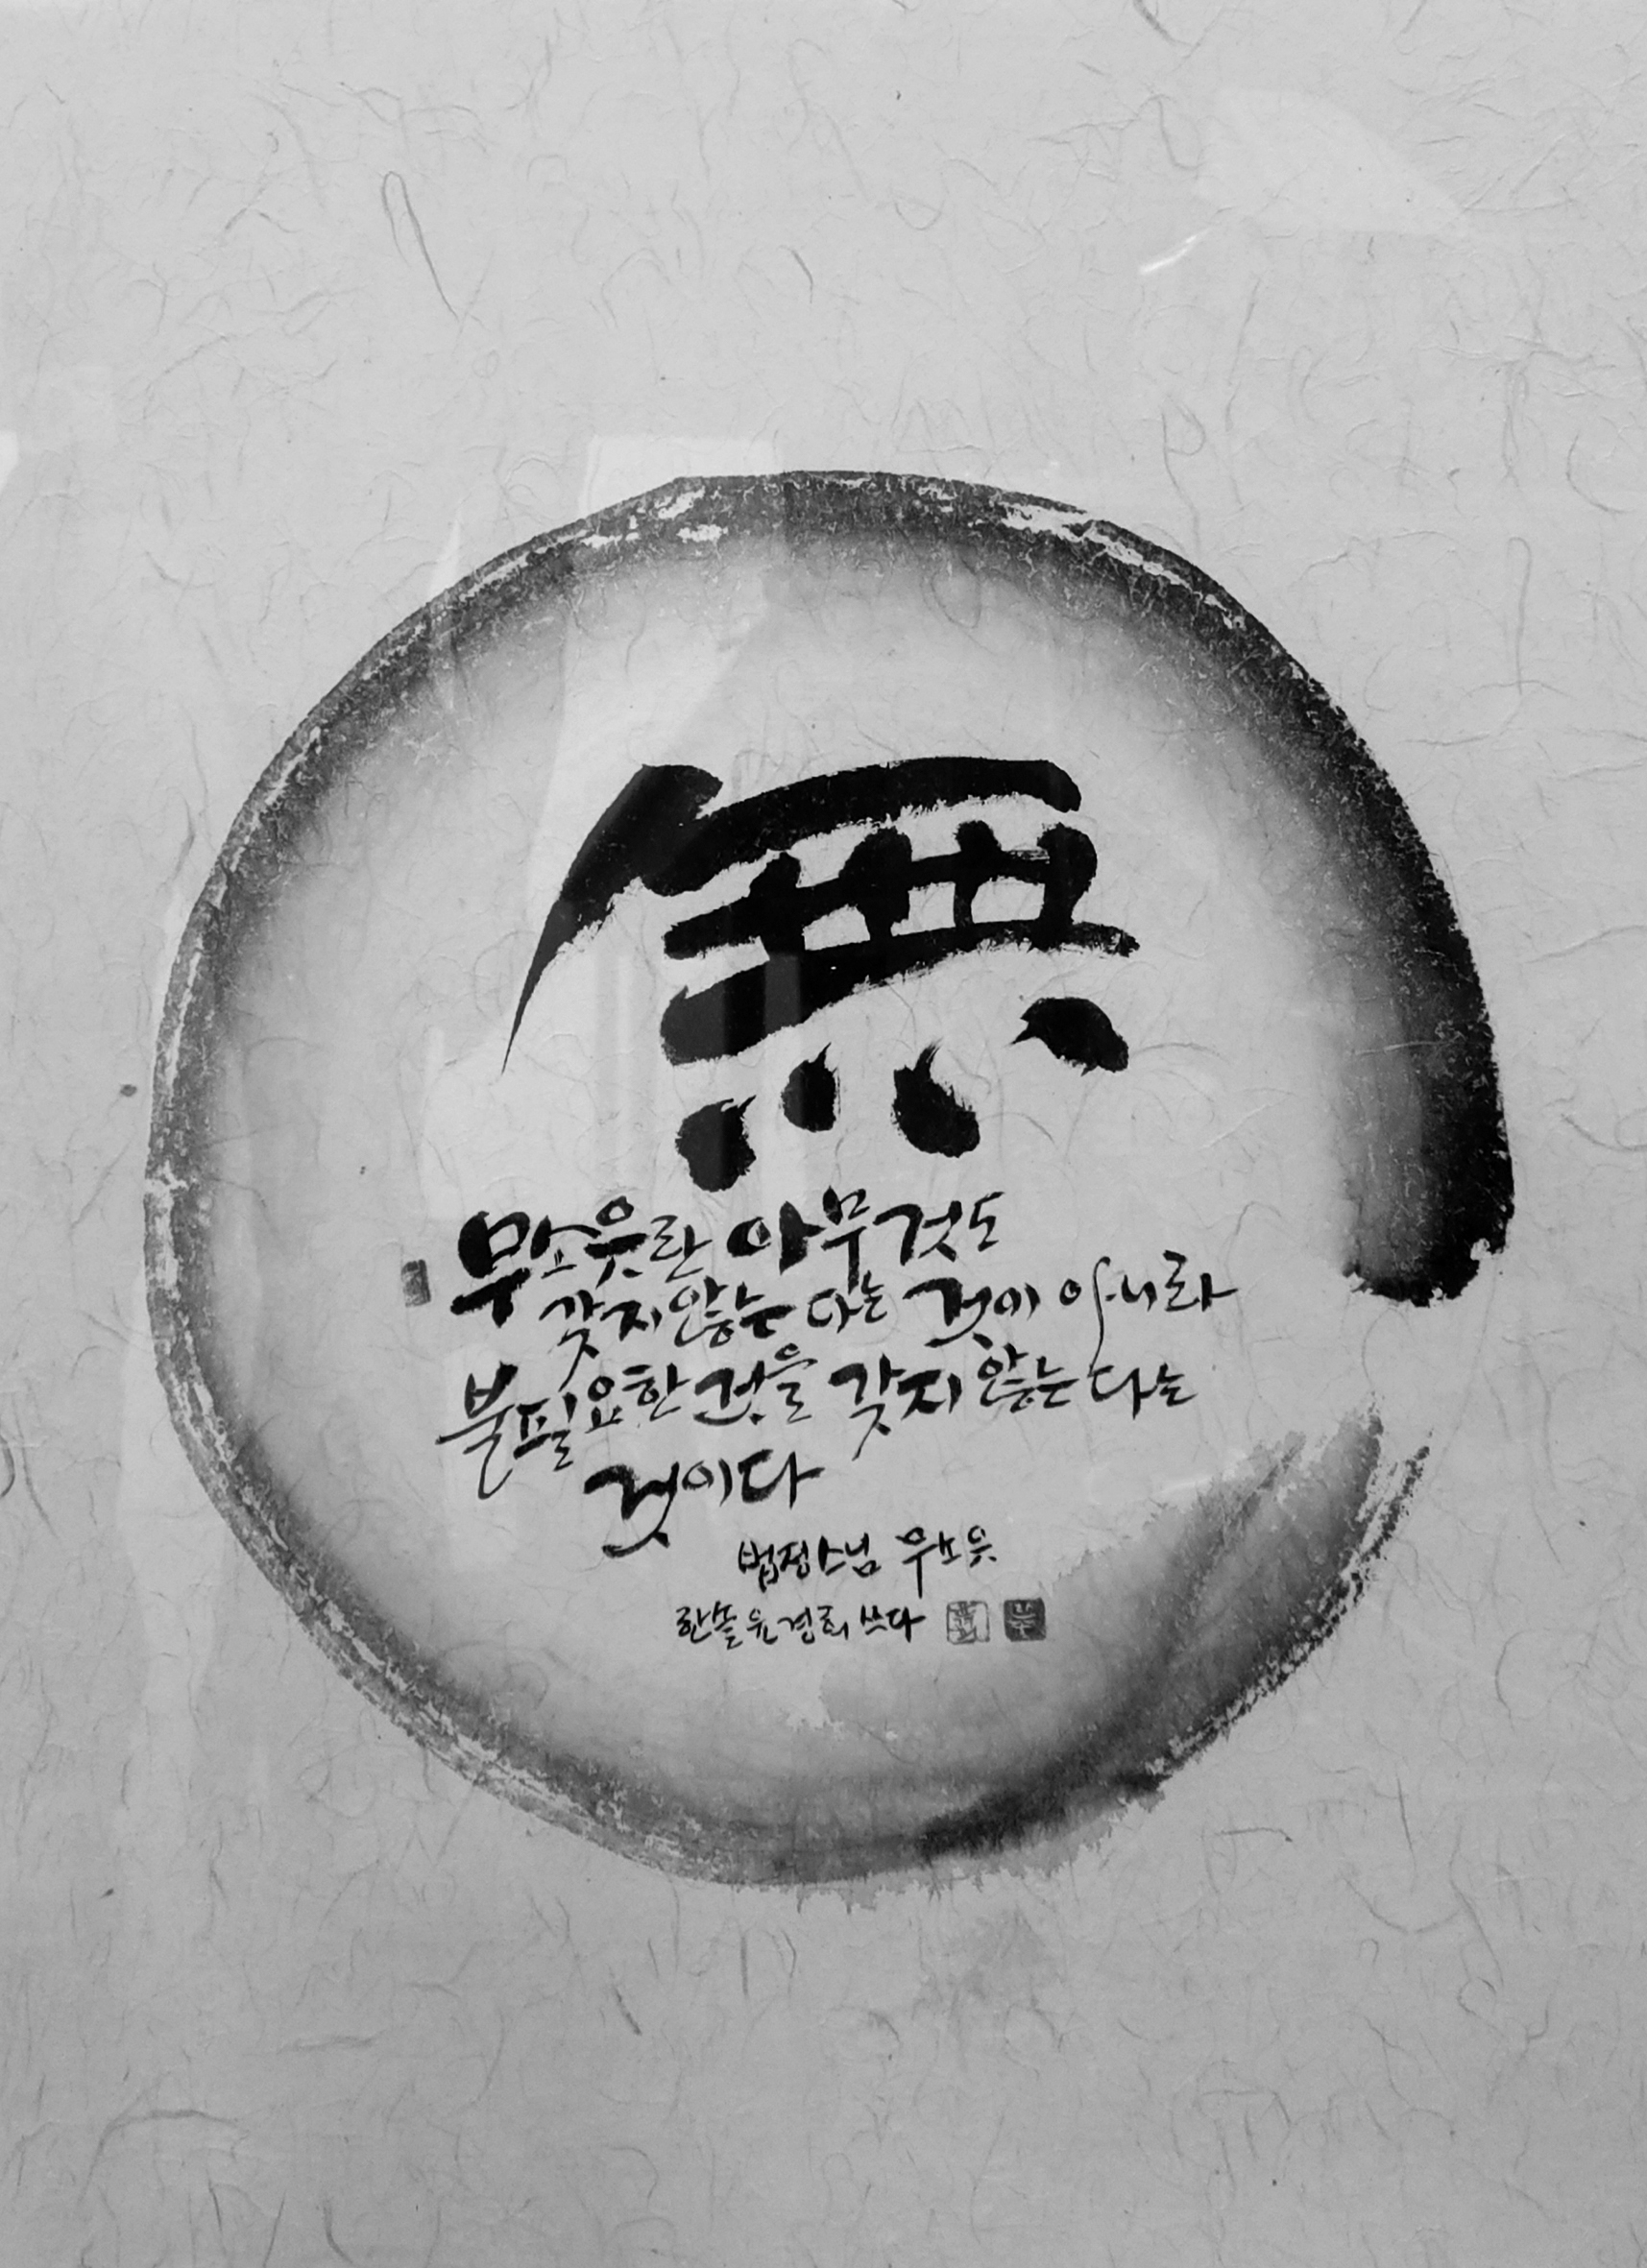 無
무소유란 아무것도
갖지 않는다는 것이 아니라
불필요한 것을 갖지 않는다는
것이다
법정스님 무소유
한솔 윤경희 쓰다